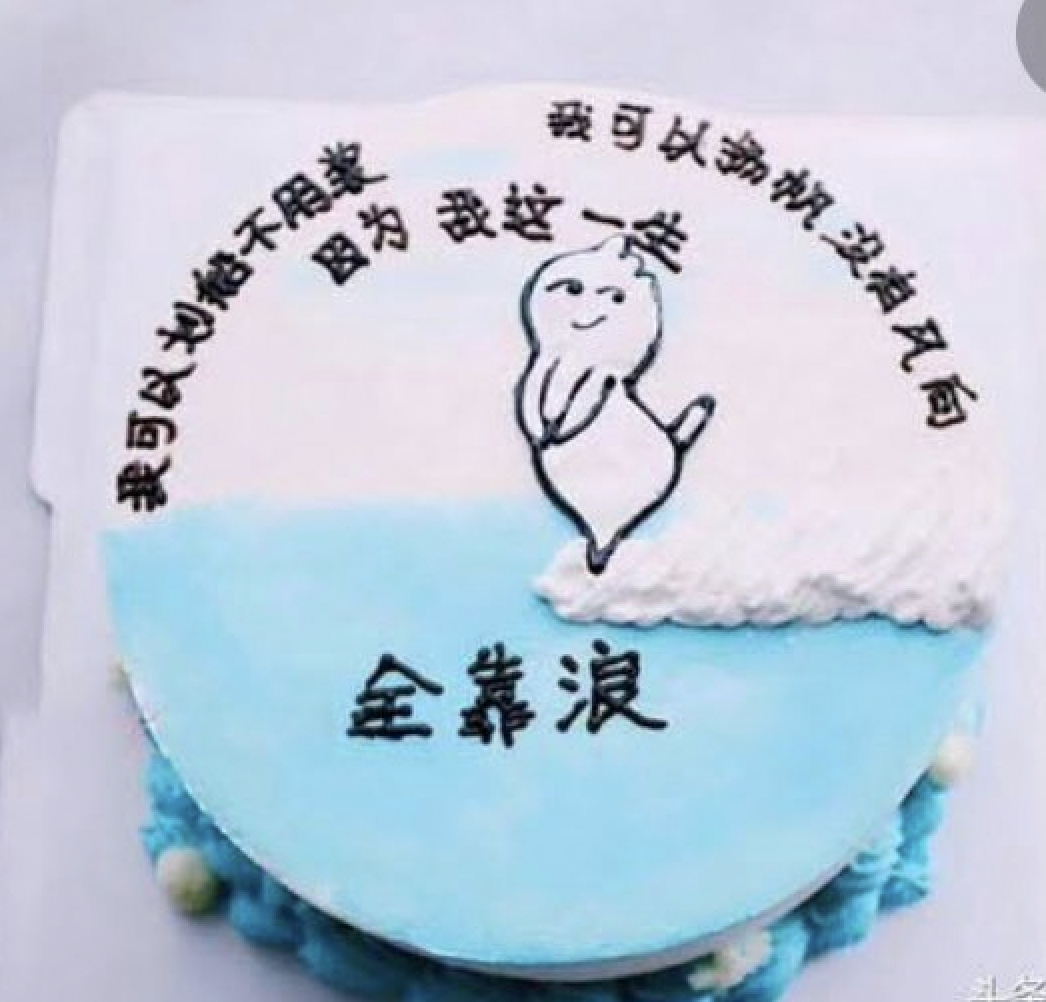 我可以划船不用桨
我可以扬帆没有风向
因为我这一生
全靠浪